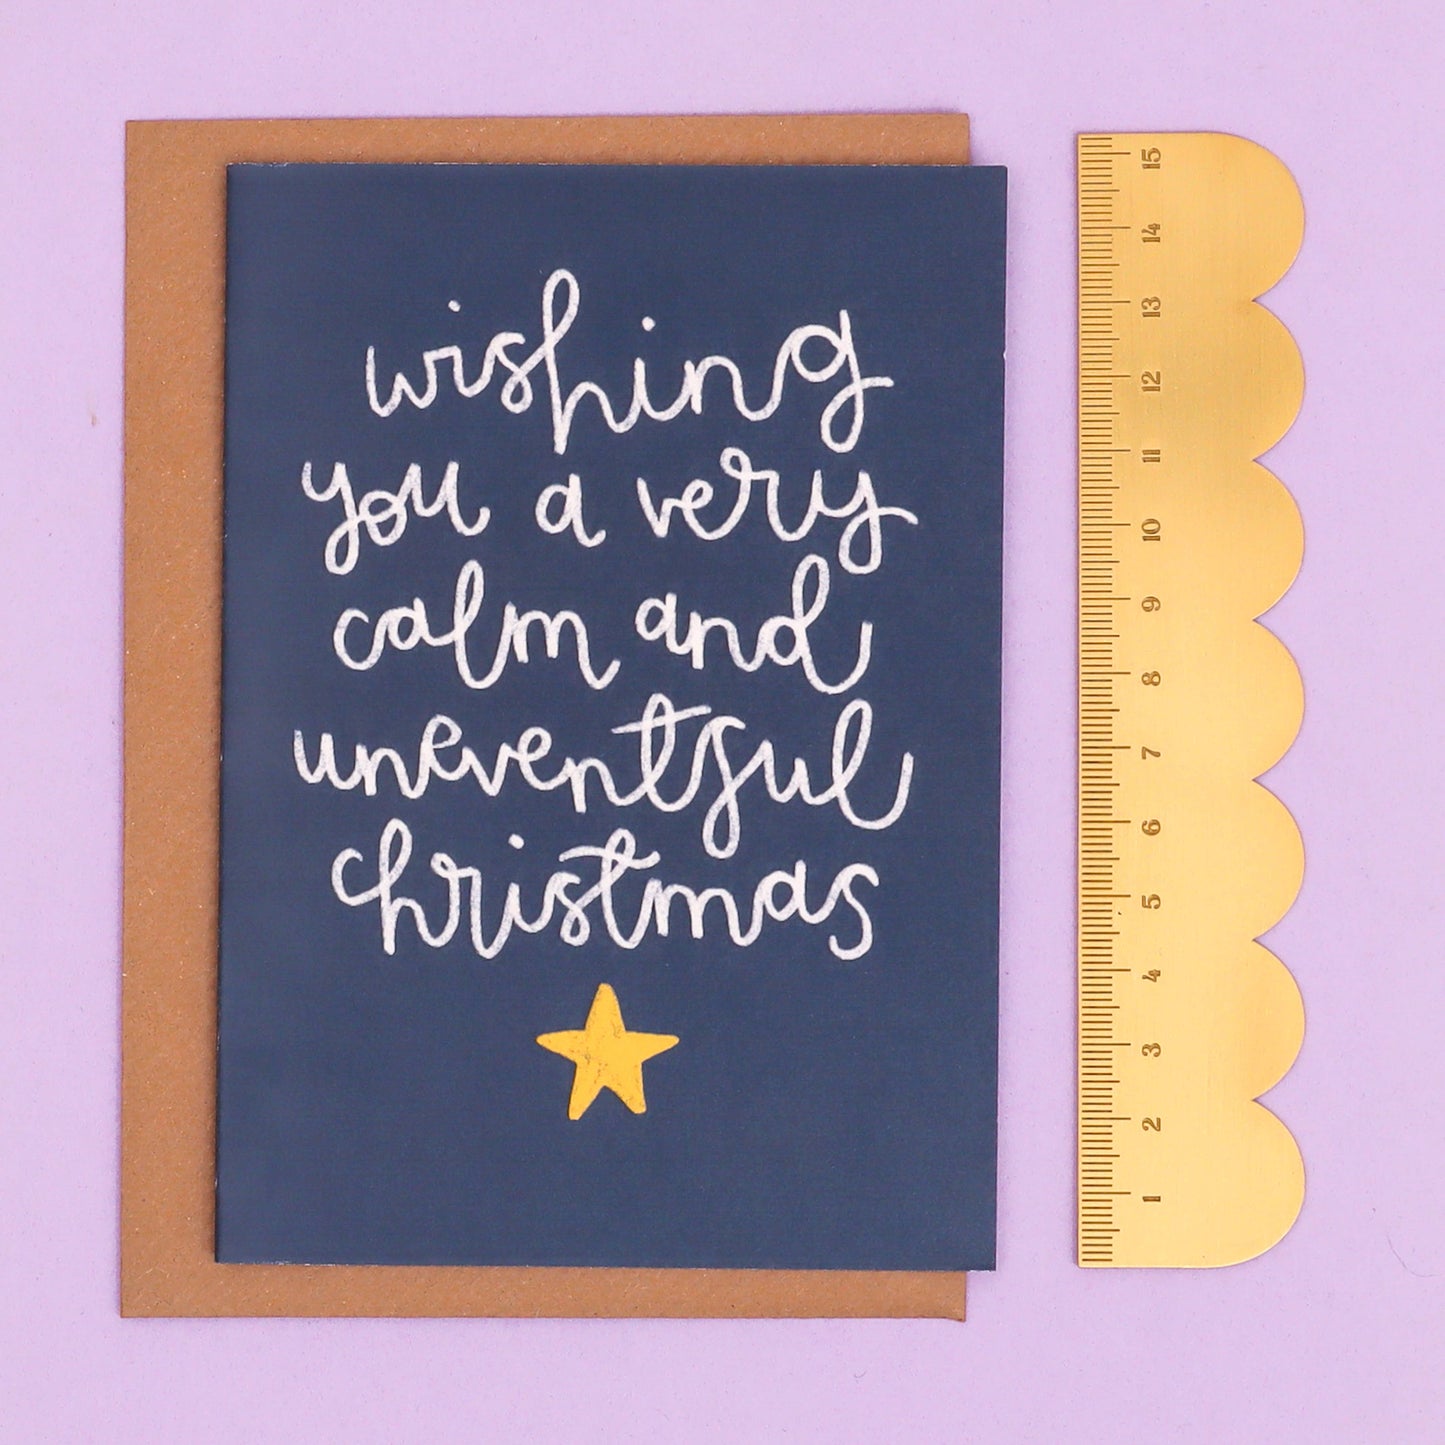 wishing
you a very
calm and
uneventful
christmas
15
14
13
12
11
10
9
8
7
6
5
4
3
2
1